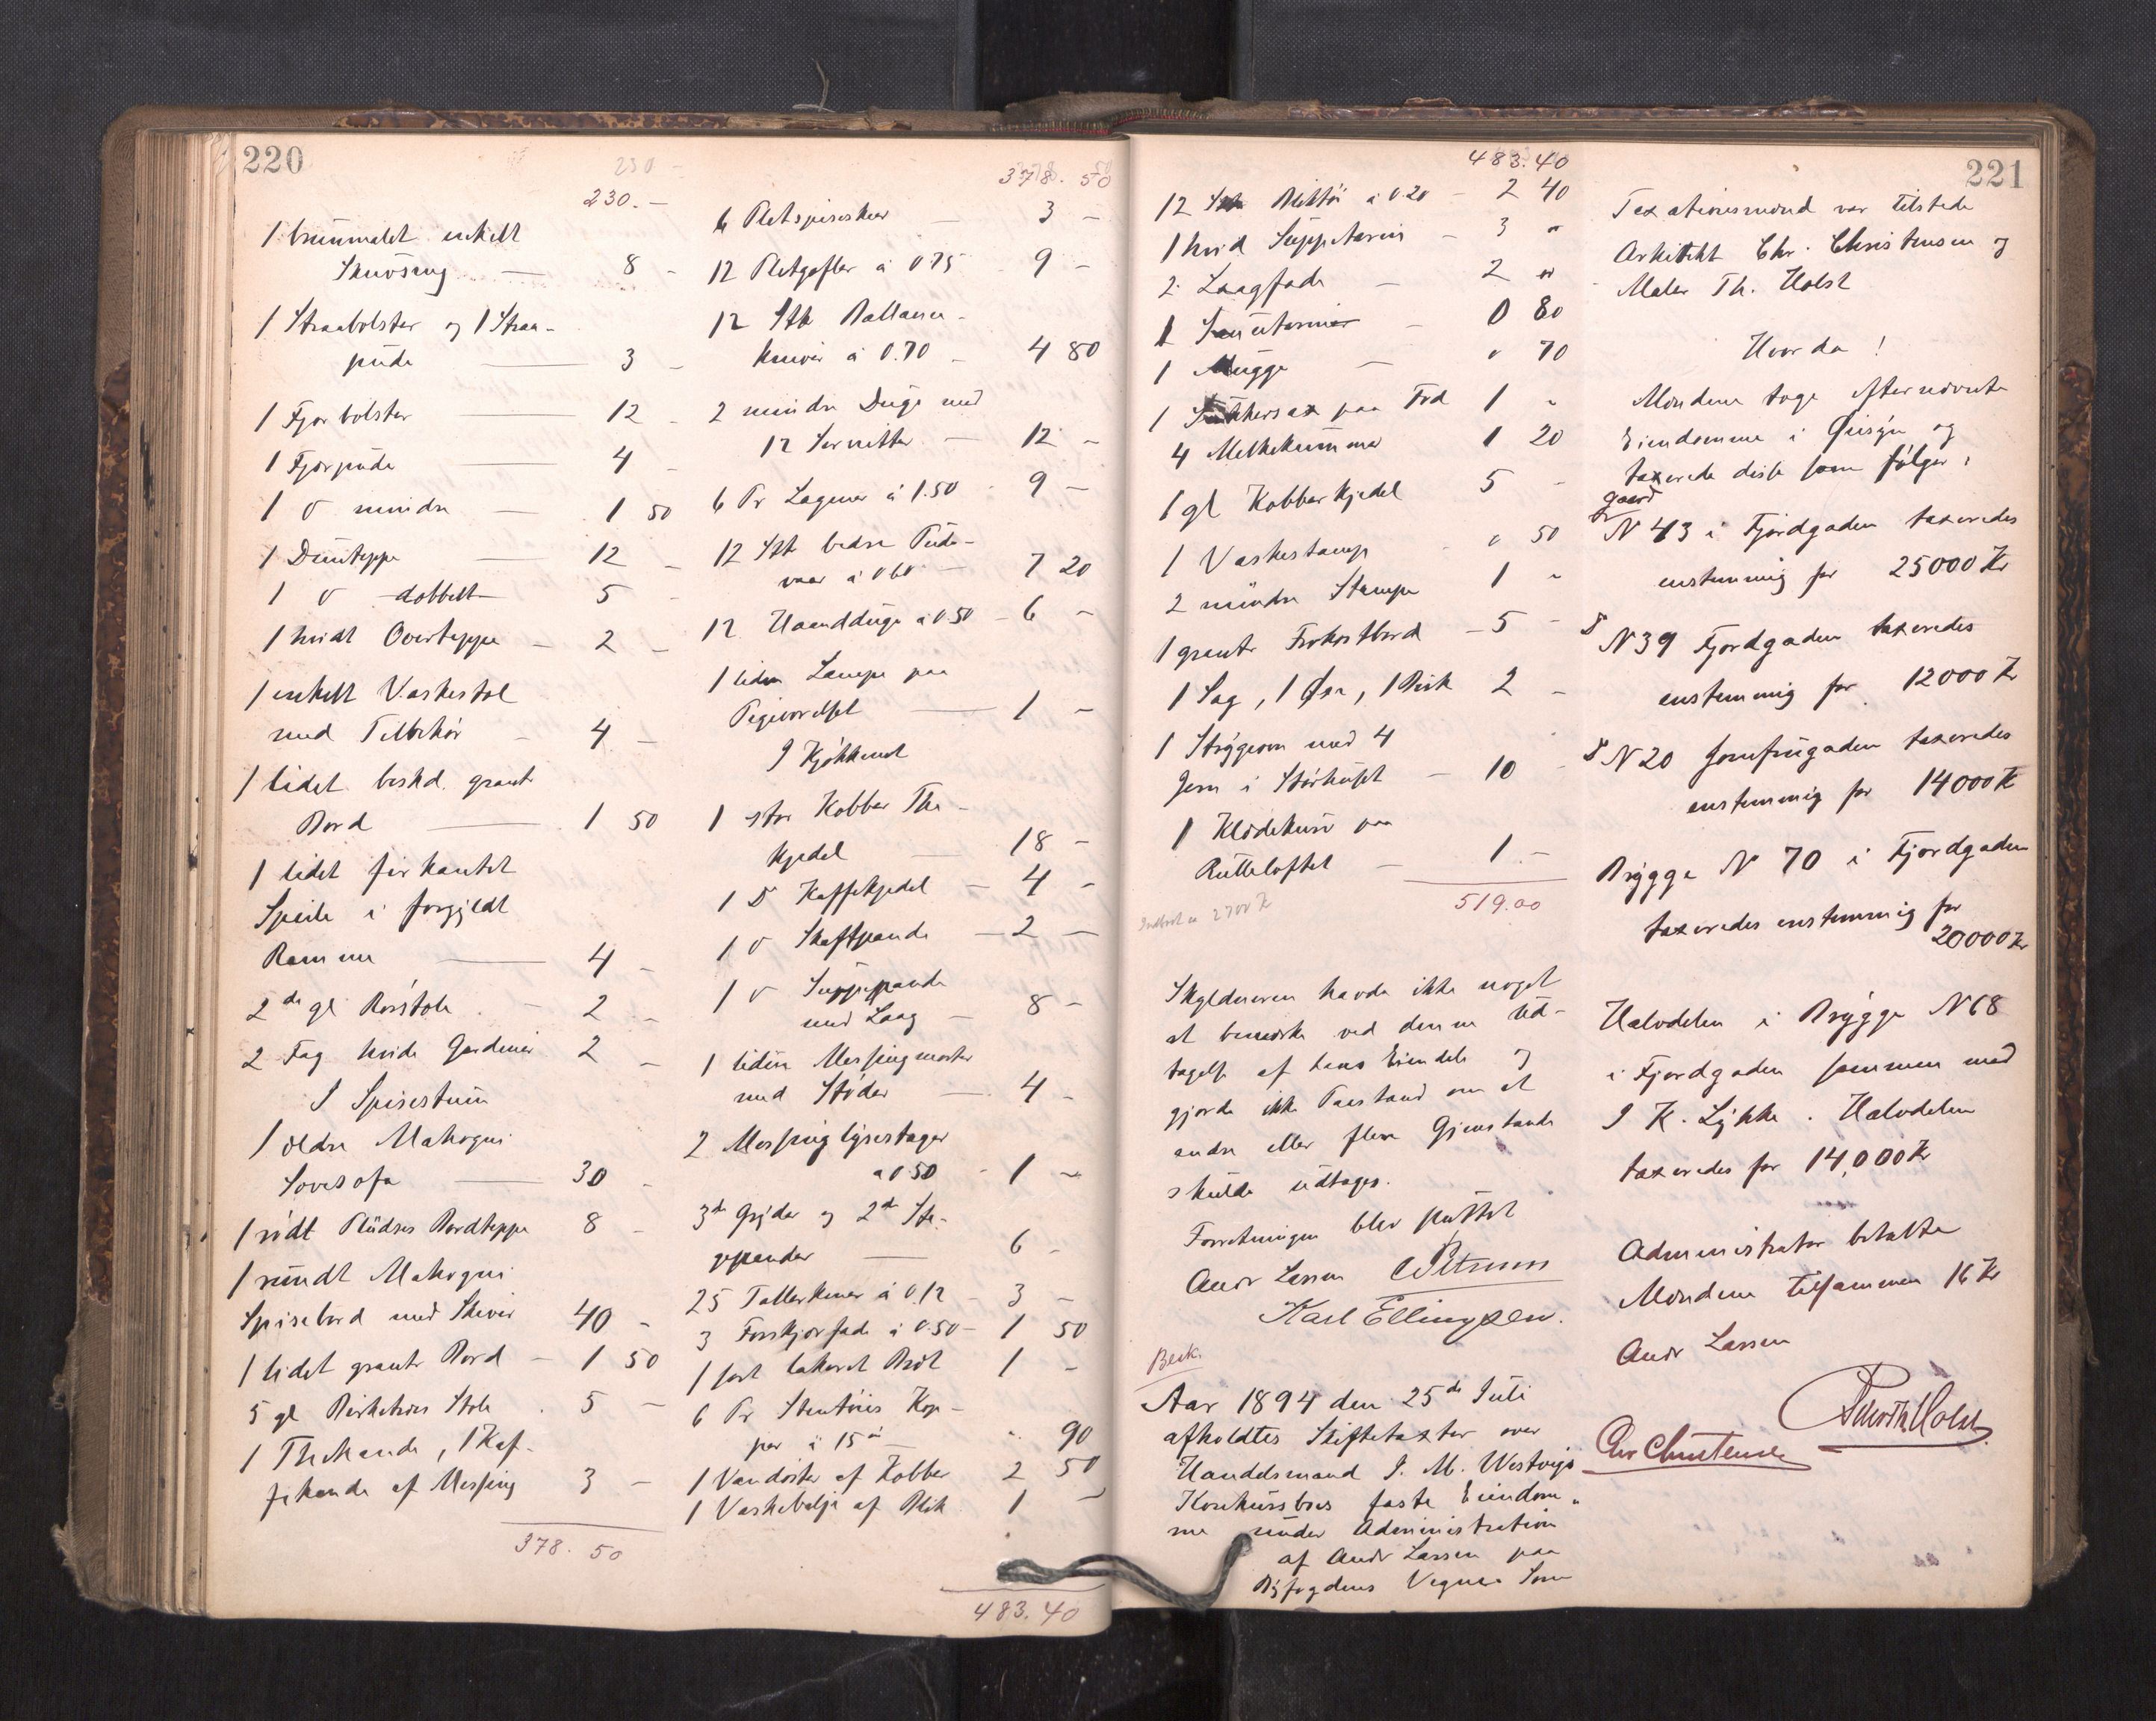 220
230 -
230. -
1 brunmalet enkelt
Skuvseng — 8 -
1 Straabolster og 1 Straa-
pude — 3 -
1 Fjærbolster — 12 -
1 Fjærpude — 4 -
1 do mindre — 1 50
1 Duntæppe — 12 -
1 do dobbelt — 5 -
1 hvidt Overtæppe — 2 -
1 enkelt Vaskestol
med Tilbehør — 4 -
1 lidet beskd. graat
Bord — 1 50
1 lidet firkantet
Speile i forgyldt
Ramme — 4 -
2de gl Rørstole — 2 -
2 Fag hvide Gardiner 2 -
I Spisestuen
1 ældre Mahogni
Sovesofa — 30 -
1 rødt Plydses Bordteppe 8 -
1 rundt Mahogni
Spisebord med Skiver 40 -
1 lidet graat Bord — 1 50
5 gl Birketræes Stole . 5 -
1 Thekande, 1 Kaf-
fekande af Messing 3 -
378. 50
378. 50
6 Pletspiseskeer — 3 -
12 Pletgafler á 0.75 - 9 -
12 Stk Ballance-
knive á 0.70 - 4 80
2 mindre Duge med
12 Servietter — 12 -
6 Pr Lagener á 1.50 - 9 -
12 Stk bedre Pude-
vaar á 0.60 — 7 20
12 Haandduge á 0.50 - 6 -
1 liden Lampe paa
Pigeværelset — 1 -
I Kjøkkenet
1 stor Kobber The-
kjedel — 18 -
1 Do Kaffekjedel — 4 -
1 do Skaftpande — 2 -
1 do Suppepande
med Laag — 8 -
1 liden Messingmorter
med Støder — 4 -
2 Messinglysestager
á 0.50 - 1 -
3de Gryder og 2de Ste-
gepander — 6 -
25 Tallerkener á 0,12 - 3 -
3 Forskjærfade á 0.50 - 1 50
1 sort lakeret Bræt 1 -
6 Pr Stentøies Kop-
per á 15 ø - .. 90
1 Vandøster af Kobber 2 50
1 Vaskebalje af Blik 1 -
483. 40
221
483. 40
12 Stk Blikfor á 0.20 - 2 40
1 hvid Suppeterin - 3 "
2 Laagfade - 2 "
1 - 0 80
1 Mugge - " 70
1 Sukkersax paa Fod 1 -
4 Melkekummer 1 20
1 gl Kobberkjedel 5 -
1 Vaskestamp - " 50
2 mindre Stampe 1 -
1 graat Frokostbord - 5 -
1 Sag, 1 Øxe, 1 Bisk 2 -
1 Strygeovn med 4
Jern i Størhuset — 10 -
1 Klædekurv paa
Rulleloftet — 1 -
519.00
2700 Kr
Skyldneren havde ikke noget
at bemærke ved denne Ud-
tagelse af hans Eiendele og
gjorde ikke Paastand om at
andre eller flere Gjenstande
skulde udtages.
Forretningen blev sluttet
Andr Larsen
Karl Ellingsen.
Besk.
Aar 1894 den 25de Juli
afholdtes Skiftetaxter over
Handelsmand I. M. Westvigs
Konkursboes faste Eiendom-
me under Administration
af Andr Larsen paa
Byfogdens Vegne. Som
Taxationsmænd var tilstede
Arkitekt Chr. Christensen og
Maler Th. Holst
Hvorda!
Mændene toge efternævnte
Eiendomme i Øiesyn og
taxerede disse som følger:
Gaard
N 43 i Fjordgaden taxeredes
enstemmig for 25000 Kr
Do N 39 Fjordgaden taxeredes
enstemmig for 12000 Kr
Do N 20 Jomfrugaden taxeredes
enstemmig for 14000 Kr
Brygge N 70 i Fjordgaden
taxeredes enstemmig for
20000 Kr
Halvdelen i Brygge N 68
i Fjordgaden sammen med
I K. Lykke. Halvdelen
taxeredes for 14,000 Kr
Administrator betalte
Mændene tilsammen 16 Kr
Andr Larsen
Chr Christensen